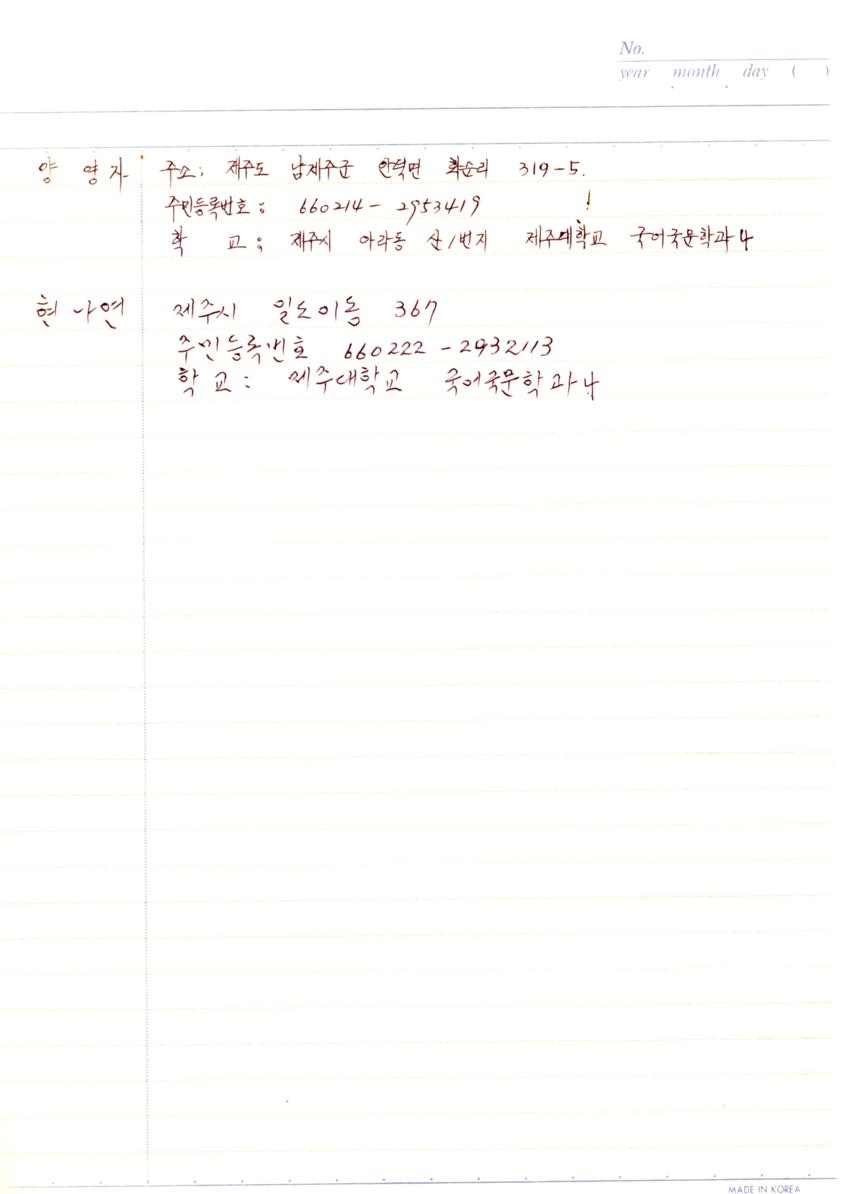 No.
year month day ( )
양 영자 주소: 제주도 남제주군 안덕면 화순리 319-5.
주민등록번호: 660214-2953419 !
학 교: 제주시 아라동 산1번지 제주대학교 국어국문학과 4
현 나연 제주시 일도이동 367
주민등록번호 660222-2932113
학교: 제주대학교 국어국문학과 4
MADE IN KOREA